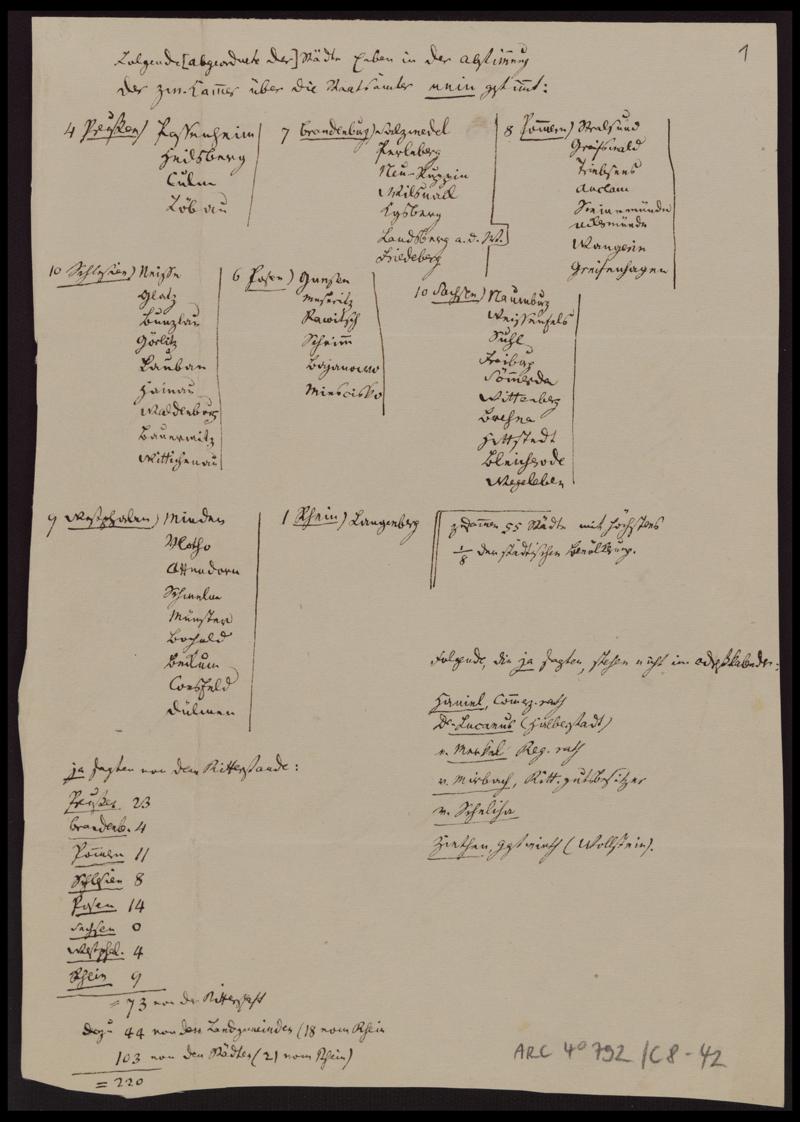 1
Folgende [abgeordnete der] Städte haben in der Abstimmung
der zw. Kammer über die Staatsämter nein gestimmt:
4 Preußen) Passenheim
Heilsberg
Culm
Löbau
7 Brandenburg) Salzwedel
Perleberg
Neu-Ruppin
Wilsnack
Kgsberg
Landsberg a.d.W.
Friedeberg
8 Pommern) Stralsund
Greifswald
Triebsees
Anclam
Swinemünde
Uckermünde
Wangerin
Greifenhagen
10 Schlesien) Neisse
Glatz
Bunzlau
Görlitz
Lauban
Hainau
Waldenburg
Bauerwitz
Wittichenau
6 Posen) Gnesen
Meseritz
Rawitsch
Schrimm
Bojanowo
Miescisko
10 Sachsen) Naumburg
Weissenfels
Suhl
Freiburg
Sömmerda
Wittenberg
Brehna
Hettstedt
Bleicherode
Wegeleben
9 Westphalen) Minden
Vlotho
Attendorn
Schwelm
Münster
Bocholt
Beckum
Coesfeld
Dülmen
1 Rhein) Langenberg
zusammen 55 Städte mit höchstens
1/8 der städtischen Bevölkerung.
Folgende, die ja sagten, stehen nicht im
Haniel, Commerz.rath
Dr. Lucanus (Halberstadt)
v. Merkel Reg. rath
v. Mirbach, Ritt.gutsbesitzer
v. Scheliha
Ziethen, Gastwirth (Wollstein).
ja sagten von dem Ritterstande:
Preußen 23
Brandenb. 4
Pommern 11
Schlesien 8
Posen 14
Sachsen 0
Westphal. 4
Rhein 9
= 73 von der Ritterschaft
dazu 44 von den Landgemeinden (18 vom Rhein
103 von den Städten (21 vom Rhein)
= 220
ARC 4° 792 / C8-42